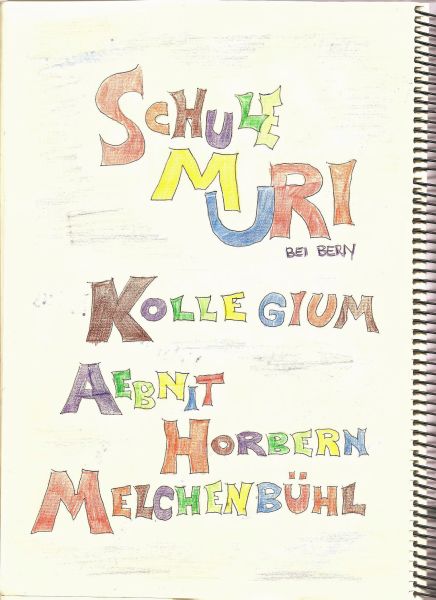 SCHULE
MURI
BEI BERN
KOLLEGIUM
AEBNIT
HORBERN
MELCHENBÜHL